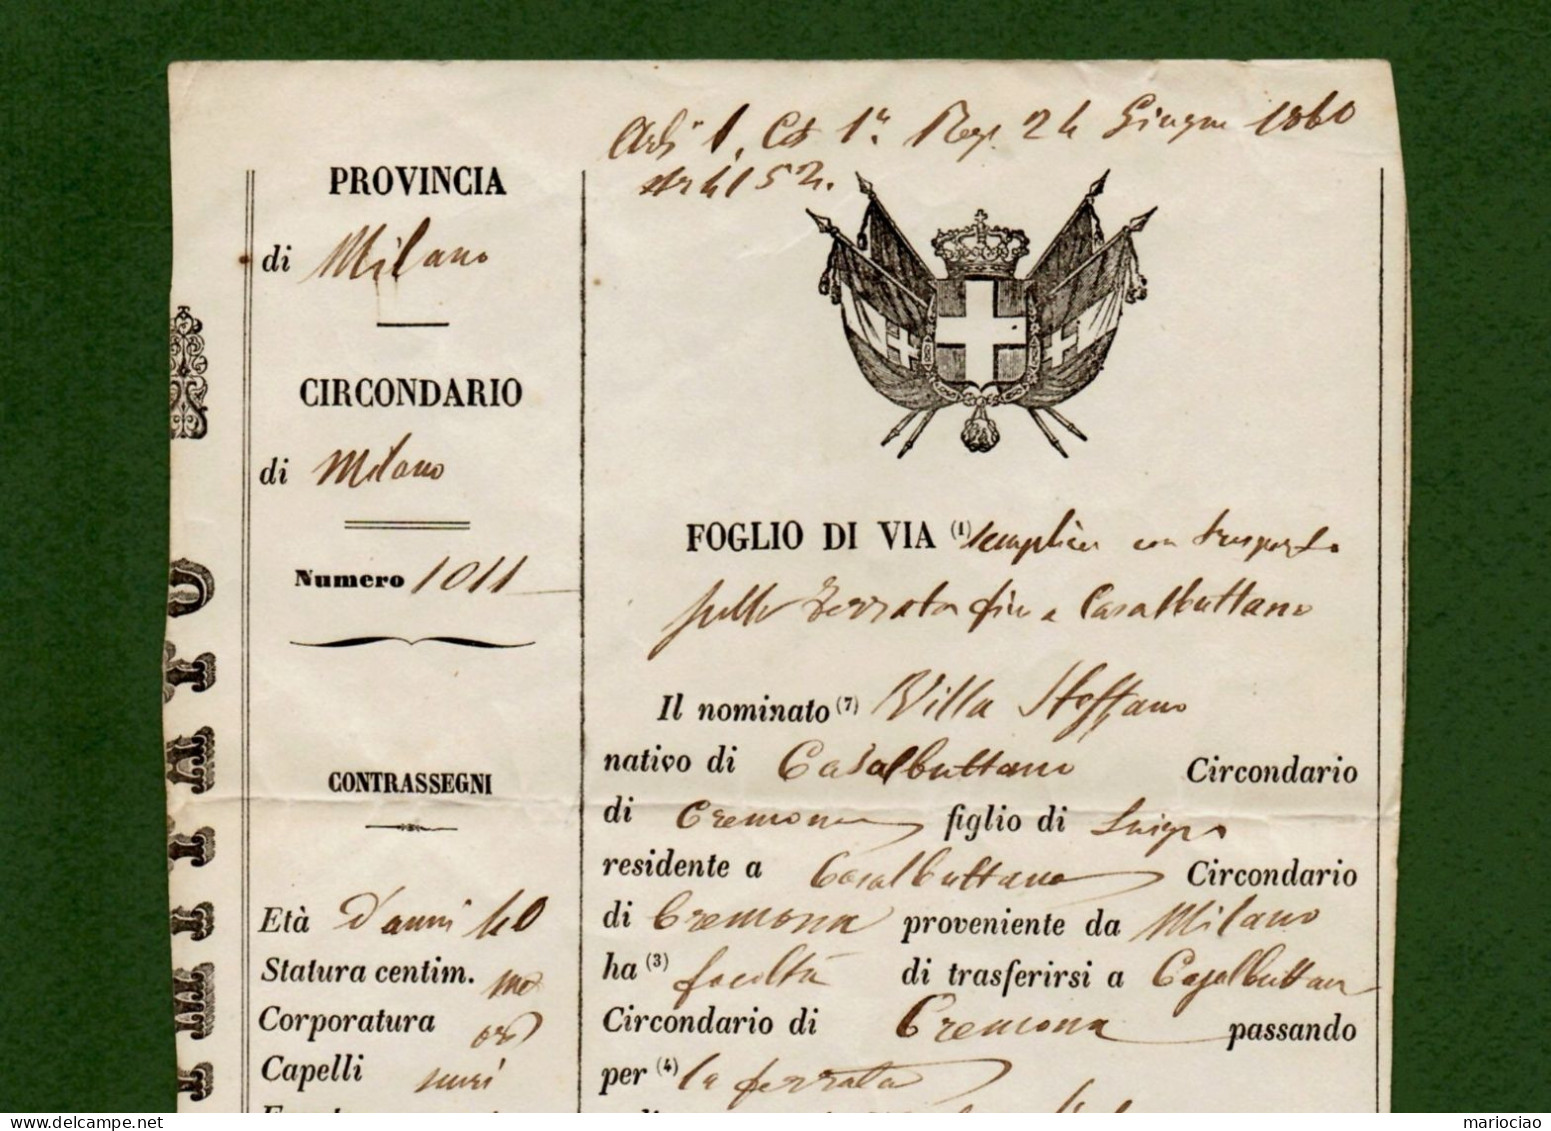 1, Giugno 1860
PROVINCIA
di Milano
CIRCONDARIO
di Milano
Numero 1011
CONTRASSEGNI
Età d'anni 40
Statura centim.
Corporatura
Capelli
FOGLIO DI VIA (1) semplice con trasporto
sulla Ferrata fin a Casalbuttano
Il nominato (7) Villa Steffano
nativo di Casalbuttano Circondario
di Cremona figlio di Luigi
residente a Casalbuttano Circondario
di Cremona proveniente da Milano
ha (3) facoltà di trasferirsi a Casalbuttan
Circondario di Cremona passando
per (4) la ferrata
mariociao